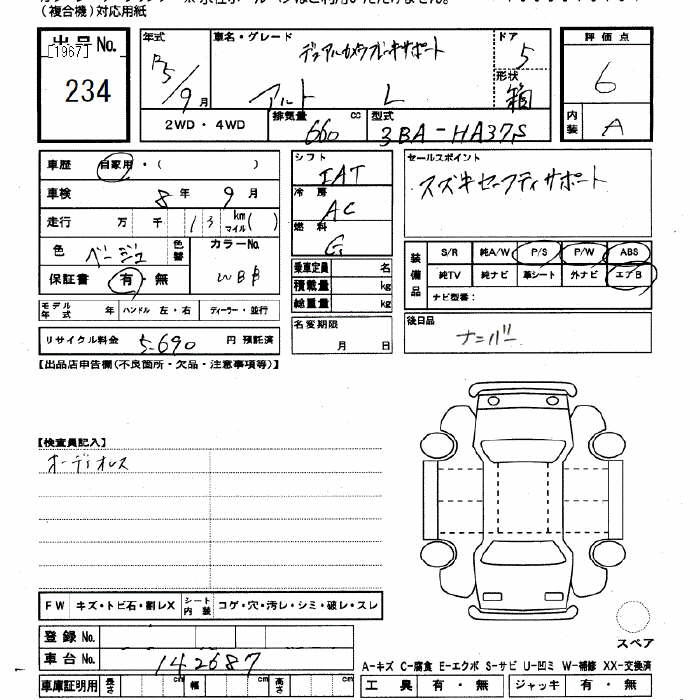 (複合機)対応用紙
出品No.
[1967]
234
年式
R5/9月
車名・グレード
デュアルカメラブレーキサポート
アルト L
ドア
5
形状
箱
2WD・4WD
排気量 660 cc
型式 3BA-HA37S
評価点
6
内装 A
車歴 自家用・( )
車検 8年 9月
走行 万 千 13 km マイル( )
色 ベージュ 色替
カラーNo. WBB
保証書 有・無
モデル年式 年 ハンドル 左・右 ディーラー・並行
リサイクル料金 5,690 円 預託済
シフト IAT
冷房 AC
燃料 G
乗車定員 名
積載量 kg
総重量 kg
名変期限
月 日
セールスポイント
スズキセーフティサポート
装備品
S/R 純A/W P/S P/W ABS
純TV 純ナビ 革シート 外ナビ エアB
ナビ型番:
後日品
ナンバー
【出品店申告欄(不良箇所・欠品・注意事項等)】
【検査員記入】
オーディオレス
FW キズ・トビ石・割レX シート内装 コゲ・穴・汚レ・シミ・破レ・スレ
登録No.
車台No. 142687
車庫証明用 長さ cm 幅 cm 高さ cm
スペア
A-キズ C-腐食 E-エクボ S-サビ U-凹ミ W-補修 XX-交換済
工具 有・無 ジャッキ 有・無